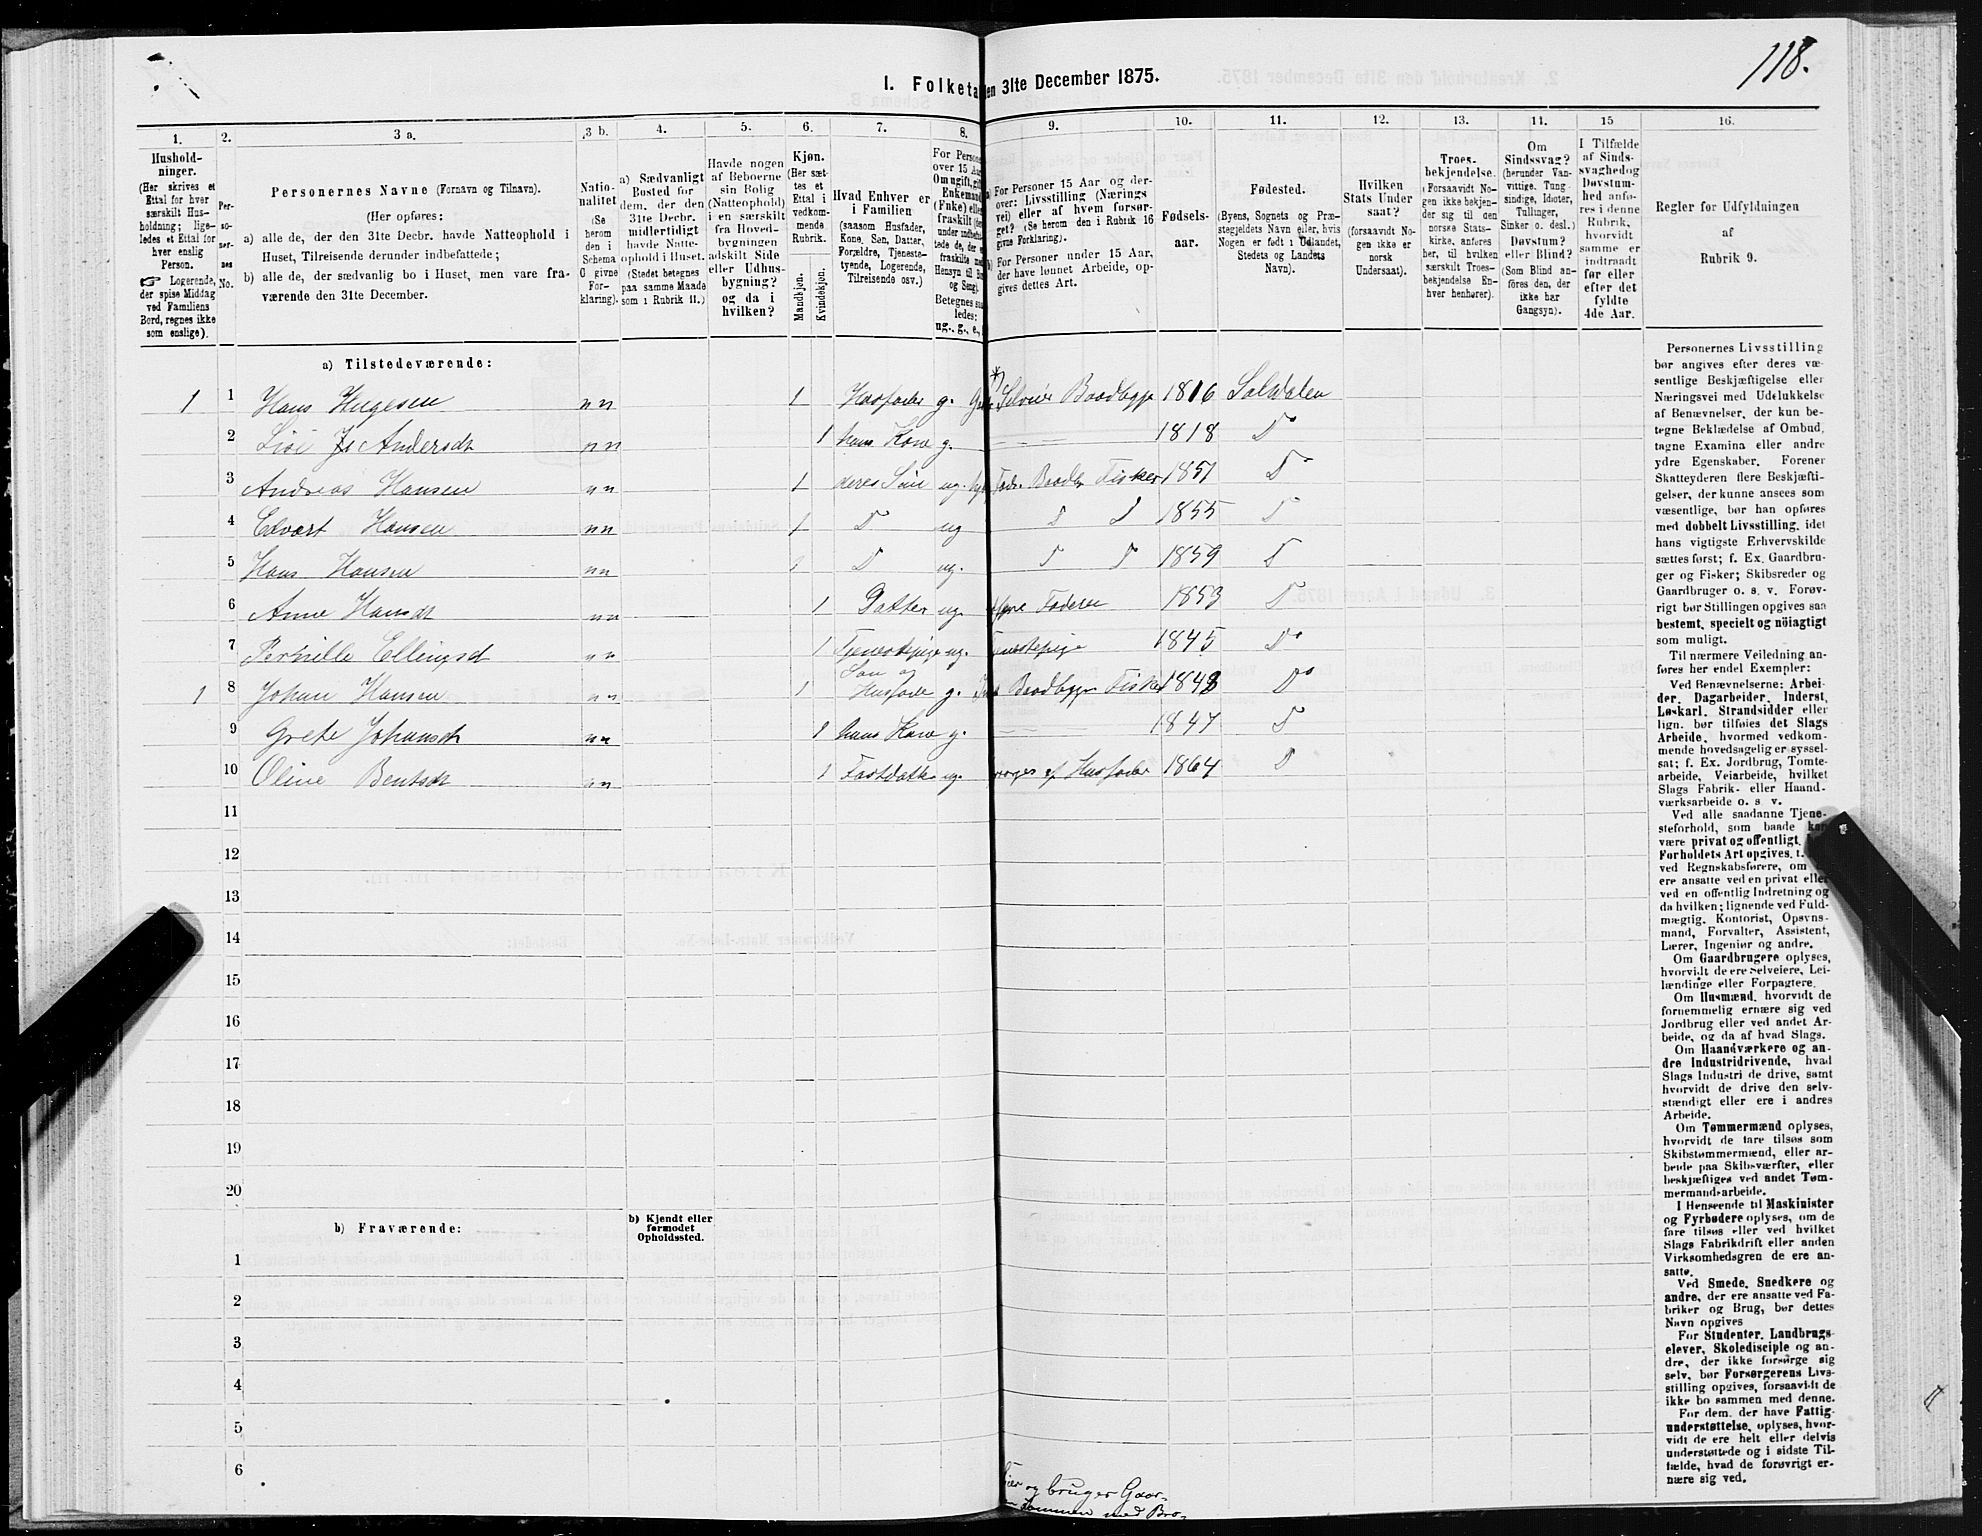 118.
I. Folketa en 31te December 1875.
1. 2. 3 a. 3 b. 4. 5. 6. 7. 8. 9. 10. 11. 12. 13. 14. 15 16.
Hushold-
ninger.
(Her skrives et
Ettal for hver
særskilt Hus-
holdning; lige-
ledes et Ettal for
hver enslig
Person.
☞ Logerende,
der spise Middag
ved Familiens
Bord, regnes ikke
som enslige).
Per-
so-
ner-
nes
No.
Personernes Navne (Fornavn og Tilnavn).
(Her opføres:
a) alle de, der den 31te Decbr. havde Natteophold i
Huset, Tilreisende derunder indbefattede;
b) alle de, der sædvanlig bo i Huset, men vare fra-
værende den 31te December.
Natio-
nalitet
(Se
herom
den i
Schema
O givne
For-
klaring).
a) Sædvanligt
Bosted for
dem, der den
31te Decbr.
midlertidigt
havde Natte-
ophold i Huset.
(Stedet betegnes
paa samme Maade
som i Rubrik 11.)
Havde nogen
af Beboerne
sin Bolig
(Natteophold)
i en særskilt
fra Hoved-
bygningen
adskilt Side
eller Udhus-
bygning?
og da i
hvilken?
Kjøn.
(Her sæt-
tes et
Ettal i
vedkom-
mende
Rubrik.
Mandkjøn.
Kvindekjøn.
Hvad Enhver er
i Familien
(saasom Husfader,
Kone, Søn, Datter,
Forældre, Tjeneste-
tyende, Logerende,
Tilreisende osv.)
For Persone
over 15 Aar
Om ugift, gif
Enkemand
(Enke) elle
fraskilt
Betegnes saa
ledes:
ug., g., e.,
a) For Personer 15 Aar og der-
over: Livsstilling (Nærings
vei) eller af hvem forsør-
get? (Se herom den i Rubrik 16
givne Forklaring).
b) For Personer under 15 Aar,
der have lønnet Arbeide, op-
gives dettes Art.
Fødsels-
aar.
Fødested.
(Byens, Sognets og Præ-
stegjeldets Navn eller, hvis
Nogen er født i Udlandet,
Stedets og Landets
Navn).
Hvilken
Stats Under
saat?
(forsaavidt No-
gen ikke er
norsk
Undersaat).
Troes-
bekjendelse.
(Forsaavidt No-
gen ikke bekjen-
der sig til den
norske Stats-
kirke, anføres
her, til hvilken
særskilt Troes-
bekjendelse En-
hver henhører).
Om
Sindssvag?
(herunder Van-
vittige, Tung-
sindige, Idioter,
Tullinger,
Sinker o. desl.)
Døvstum?
eller Blind?
(Som Blind an-
føres den, der
ikke har
Gangsyn).
I Tilfælde
af Sinds-
svaghed og
Døvstum-
hed anfø-
res i denne
Rubrik,
hvorvidt
samme er
indtraadt
før eller
efter det
fyldte
4de Aar.
Regler for Udfyldningen
af
Rubrik 9.
a) Tilstedeværende:
1 1 Hans Hugesen nn 1 Husfader g. *) Selveier Baadbygger 1816 Saldalen
2 Andersdt nn 1 hans Kone g. 1818 Do
3 Andreas Hansen nn 1 deres Søn ug. Fiskeri 1851 D
4 Edvart Hansen nn 1 D ug 1855 D
5 Hans Hansen nn 1 D ug. 1859 D
6 Anne Hansdt nn 1 Datter ug. Faderen 1853 D
7 Pernille Ellingsdt nn 1 Tjenestepige ug. 1845 Do
1 8 Johan Hansen nn 1 Søn og Husfader g. Baadbygger Fisker 1848 Do
9 Grete Johansdt nn 1 hans Kone g. 1847 D
10 Oline Bentsdt nn 1 Fostdatter ug. af Husfader 1864 D
11
12
13
14
15
16
17
18
19
20
b) Fraværende:
b) Kjendt eller
formodet
Opholdssted.
1
2
3
4
5
6
og bruger Gaar-
sammen med Bro-
Personernes Livsstilling
bør angives efter deres væ-
sentlige Beskjæftigelse eller
Næringsvei med Udelukkelse
af Benævnelser, der kun be-
tegne Beklædelse af Ombud,
tagne Examina eller andre
ydre Egenskaber. Forener
Skatteyderen flere Beskjæfti-
gelser, der kunne ansees som
væsentlige, bør han opføres
med dobbelt Livsstilling, idet
hans vigtigste Erhvervskilde
sættes først; f. Ex. Gaardbru-
ger og Fisker; Skibsreder og
Gaardbruger o. s. v. Forøv-
rigt bør Stillingen opgives saa
bestemt, specielt og nöiagtigt
som muligt.
Til nærmere Veiledning an-
føres her endel Exempler:
Ved Benævnelserne: Arbei-
der, Dagarbeider, Inderst,
Løskarl, Strandsidder eller
lign. bør tilføies det Slags
Arbeide, hvormed vedkom-
mende hovedsagelig er syssel-
sat; f. Ex. Jordbrug, Tomte-
arbeide, Veiarbeide, hvilket
Slags Fabrik- eller Haand-
værksarbeide o. s. v.
Ved alle saadanne Tjene-
steforhold, som baade kan
være privat og offentligt,
Forholdets Art opgives, t.
ved Regnskabsførere, om
ere ansatte ved en privat eller
ved en offentlig Indretning og
da hvilken; lignende ved Fuld-
mægtig, Kontorist, Opsyns-
mand, Forvalter, Assistent,
Lærer, Ingeniør og andre.
Om Gaardbrugere oplyses,
hvorvidt de ere Selveiere, Lei-
lændinge eller Forpagtere.
Om Husmænd, hvorvidt de
fornemmelig ernære sig ved
Jordbrug eller ved andet Ar-
beide, og da af hvad Slags.
Om Haandværkere og an-
dre Industridrivende, hvad
Slags Industri de drive, samt
hvorvidt de drive den selv-
stændigt eller ere i andres
Arbeide.
Om Tømmermænd oplyses,
hvorvidt de fare tilsøs som
Skibstømmermænd, eller ar-
beide paa Skibsværfter, eller
beskjæftiges ved andet Tøm-
mermandsarbeide.
I Henseende til Maskinister
og Fyrbødere oplyses, om de
fare tilsøs eller ved hvilket
Slags Fabrikdrift eller anden
Virksomhedsgren de ere an-
satte.
Ved Smede, Snedkere og
andre, der ere ansatte ved Fa-
briker og Brug, bør dettes
Navn opgives
For Studenter, Landbrugs-
elever, Skoledisciple og an-
dre, der ikke forsørge sig
selv, bør Forsørgerens Livs-
stilling opgives, forsaavidt de
ikke bo sammen med denne.
For dem, der have Fattig-
understøttelse, oplyses, hvor-
vidt de ere helt eller delvis
understøttede og i sidste Til-
fælde, hvad de forøvrigt er-
nære sig ved.